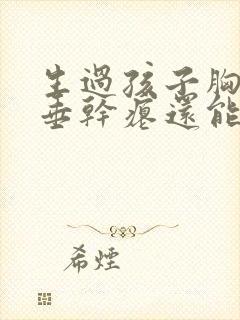 生過孩子胸
垂幹癟還能
希煙